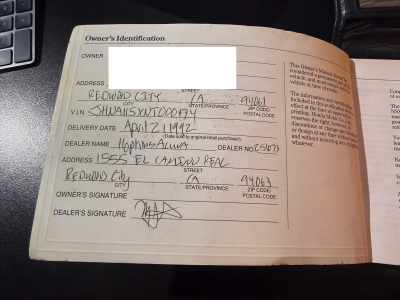 Owner's Identification
OWNER
ADDRESS
STREET
REDWOOD CITY CA 94061
CITY STATE/PROVINCE ZIP CODE/ POSTAL CODE
V.I.N.
DELIVERY DATE April 21 1992
(Date sold to original retail purchaser)
DEALER NAME Hopkins Acura DEALER NO 251073
ADDRESS 1555 EL CAMINO REAL
STREET
REDWOOD City CA 94063
CITY STATE/PROVINCE ZIP CODE/ POSTAL CODE
OWNER'S SIGNATURE
DEALER'S SIGNATURE
This Owner's Manual should be
considered a permanent part of the
vehicle, and must remain with the
vehicle at time of resale.
The information and specifications
included in this publication were in
effect at the time of approval for
printing. Honda Motor Co., Ltd.
reserves the right, however, to
discontinue or change specifications
or design at any time without notice
and without incurring any obligation
whatever.